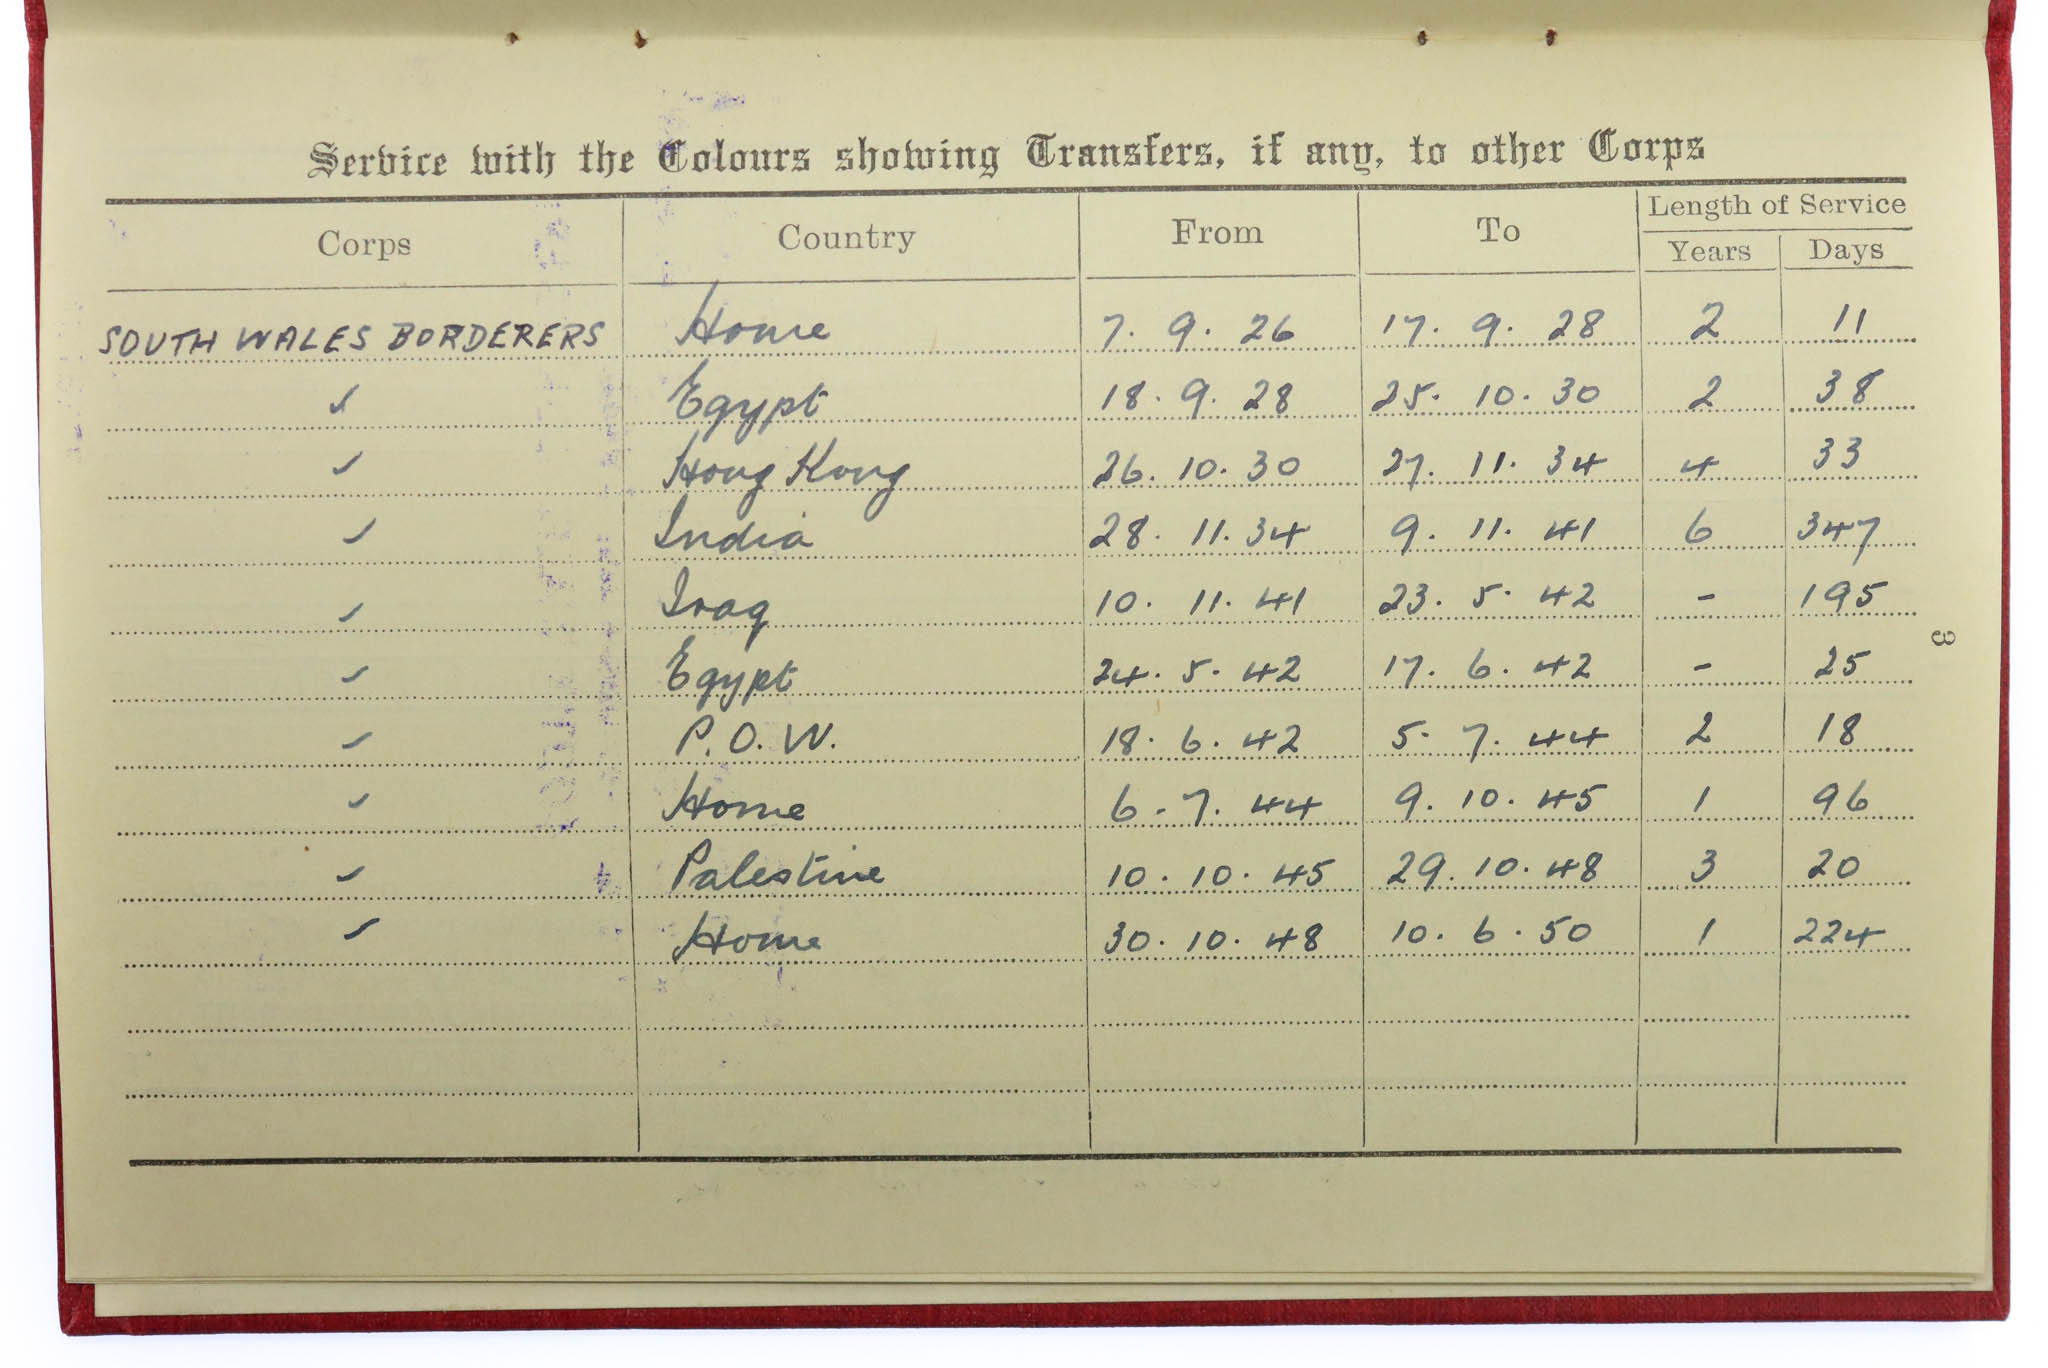 Service with the Colours showing Transfers, if any, to other Corps
Corps Country From To Length of Service
Years Days
SOUTH WALES BORDERERS Home 7. 9. 26 17. 9. 28 2 11
✓ Egypt 18. 9. 28 25. 10. 30 2 38
✓ Hong Kong 26. 10. 30 27. 11. 34 4 33
✓ India 28. 11. 34 9. 11. 41 6 347
✓ Iraq 10. 11. 41 23. 5. 42 - 195
✓ Egypt 24. 5. 42 17. 6. 42 - 25
✓ P.O.W. 18. 6. 42 5. 7. 44 2 18
✓ Home 6. 7. 44 9. 10. 45 1 96
✓ Palestine 10. 10. 45 29. 10. 48 3 20
✓ Home 30. 10. 48 10. 6. 50 1 224
3